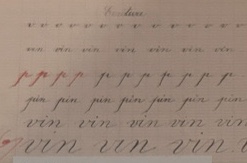 Écriture
v v v v v v v v v v v
vin vin vin vin vin vin vin
p p p p p p p p p p p
pin pin pin pin pin pin pin
vin vin vin vin vin vin
vin vin vin vin